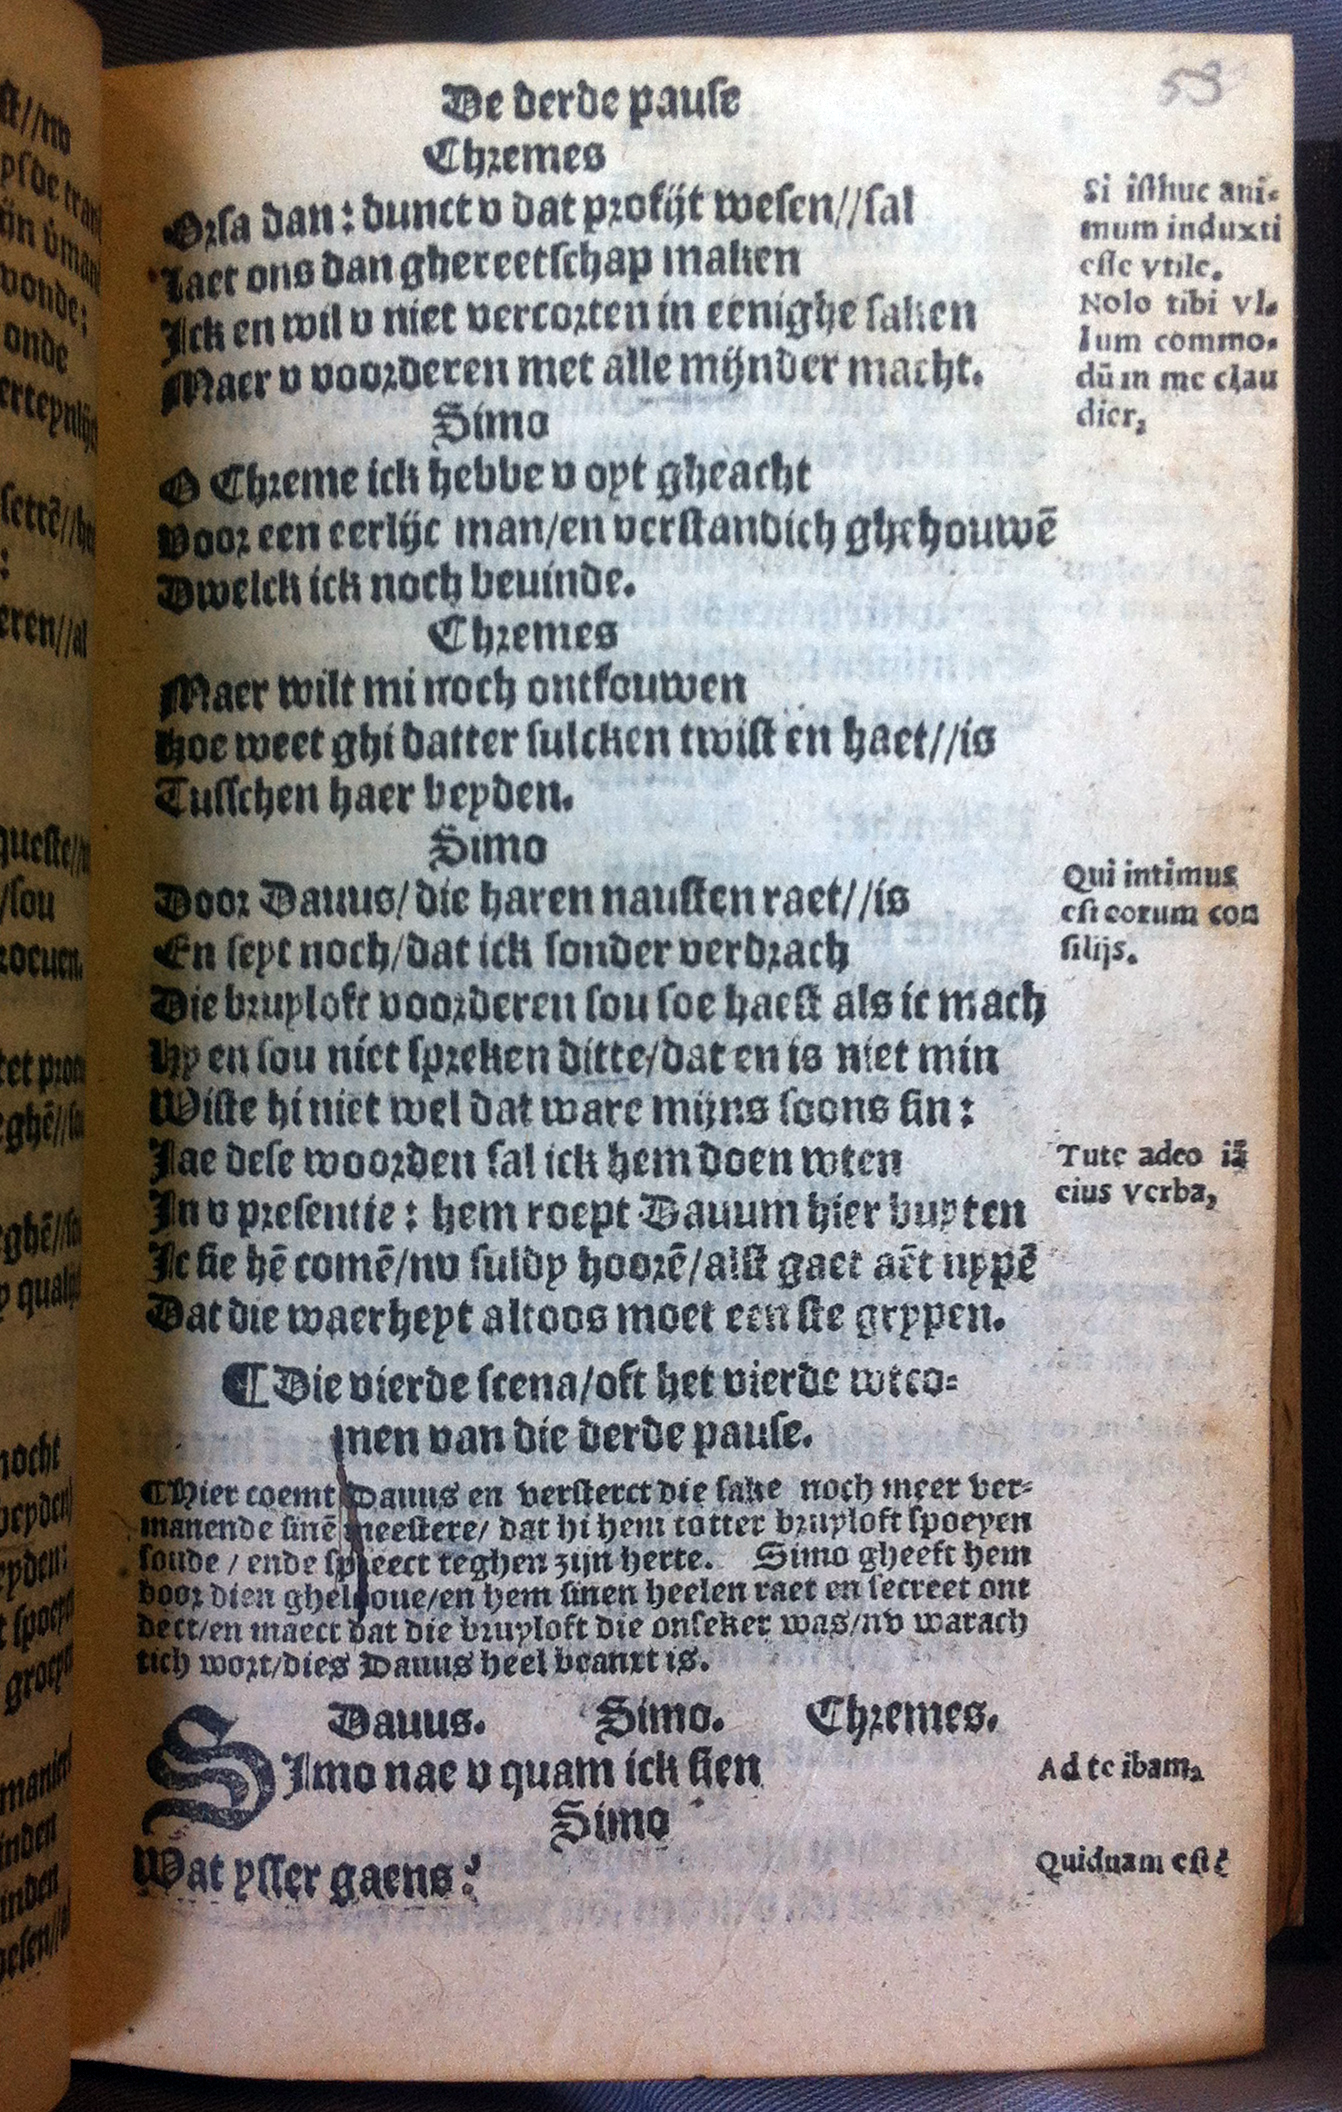 53
De derde pause
Chremes
Orsa dan: dunct v dat profijt wesen//sal
Laet ons dan ghereetschap maken
Ick en wil v niet vercorten in eenighe saken
Maer v voorderen met alle mijnder macht.
Si isthuc ani-
mum induxti
esse vtile.
Nolo tibi vl-
lum commo-
dū in me clau
dier,
Simo
O Chreme ick hebbe v oyt gheacht
Voor een eerlijc man/en verstandich ghehouwē
Dwelck ick noch beuinde.
Chremes
Maer wilt mi noch ontfouwen
Hoe weet ghi datter sulcken twist en haet//is
Tusschen haer beyden.
Simo
Door Dauus/die haren nausten raet//is
En seyt noch/dat ick sonder verdrach
Die bruyloft voorderen sou soe haest als ic mach
Hy en sou niet spreken ditte/dat en is niet min
Wiste hi niet wel dat ware mijns soons sin:
Jae dese woorden sal ick hem doen wten
In v presentie: hem roept Dauum hier buyten
Ic sie hē comē/nv suldy hoorē/alst gaet aēt nypē
Dat die waerheyt altoos moet een ste grypen.
Qui intimus
est eorum con
silijs.
Tute adeo iā
eius verba,
¶ Die vierde scena/oft het vierde wtco-
men van die derde pause.
¶Hier coemt Dauus en versterct die sake noch meer ver-
manende sinē meestere/ dat hi hem totter bruyloft spoeyen
soude / ende spreect teghen zijn herte. Simo gheeft hem
voor dien ghelooue/en hem sinen heelen raet en secreet ont
dect/en maect dat die bruyloft die onseker was/nv warach
tich wort/dies Dauus heel beanxt is.
Dauus. Simo. Chremes.
SImo nae v quam ick sien
Ad te ibam,
Simo
Wat ysser gaens?
Quidnam est?